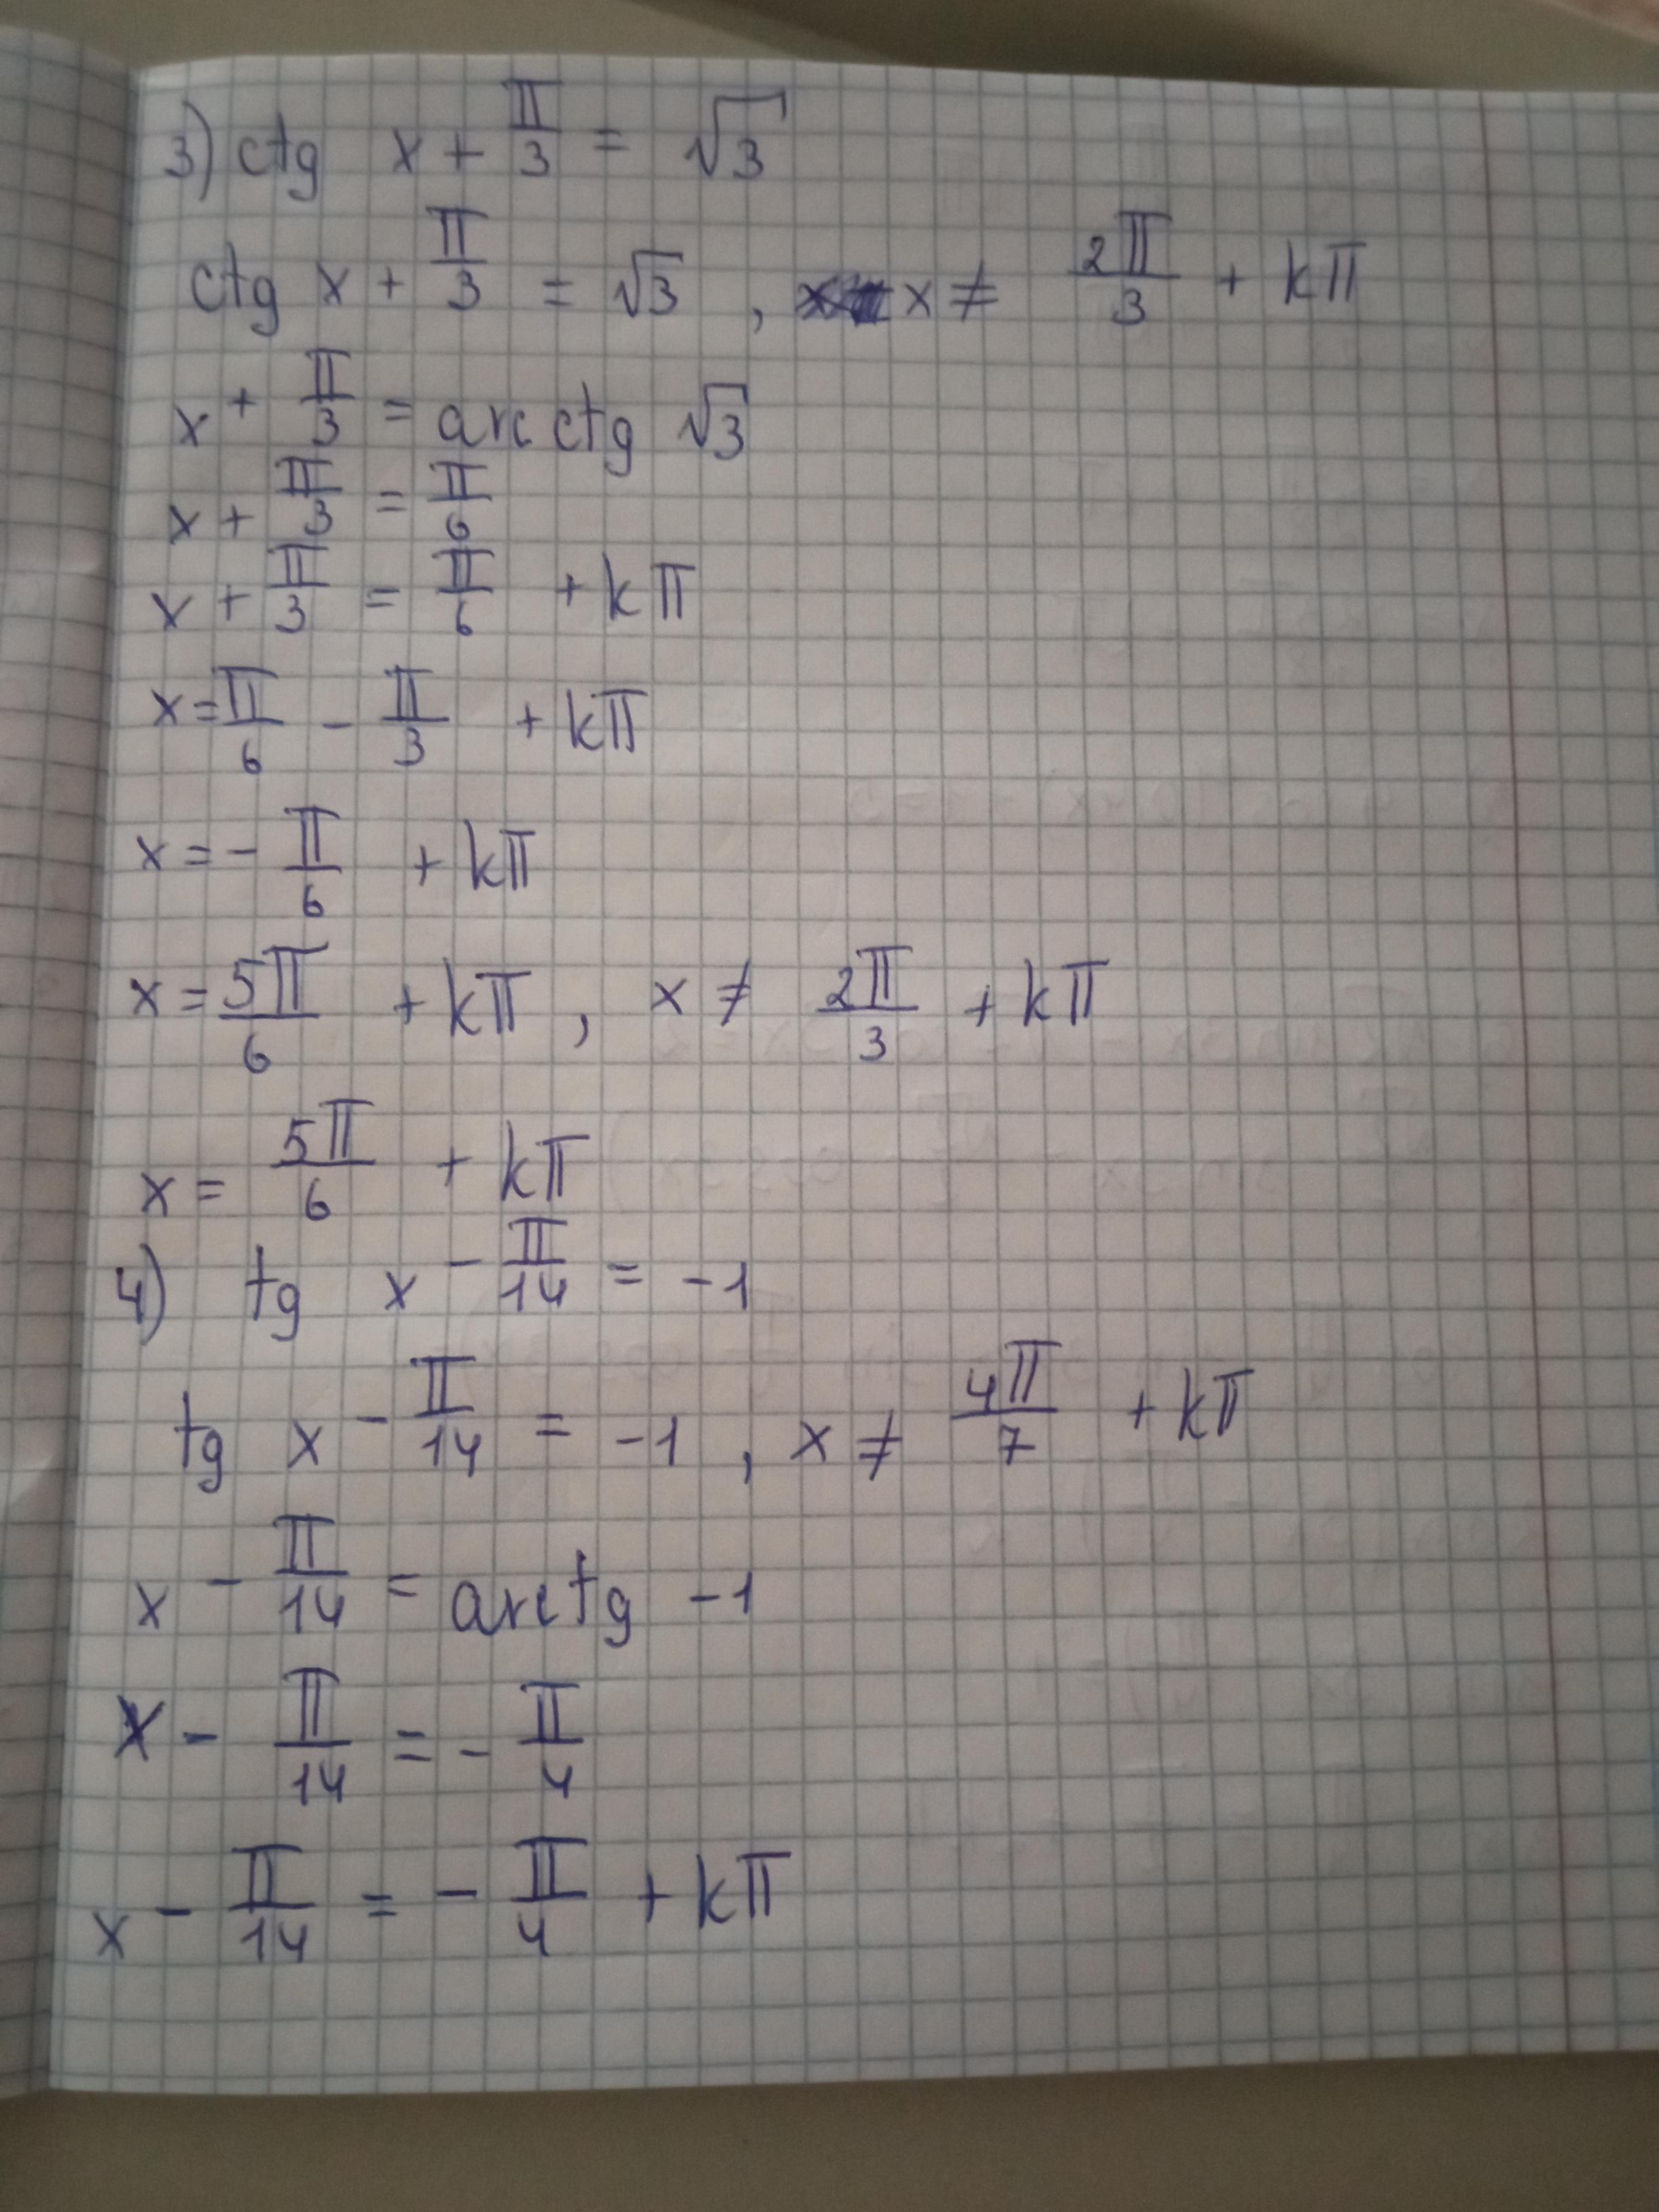 3) ctg x + π/3 = √3
ctg x + π/3 = √3 , x ≠ 2π/3 + kπ
x + π/3 = arcctg √3
x + π/3 = π/6
x + π/3 = π/6 + kπ
x = π/6 - π/3 + kπ
x = - π/6 + kπ
x = 5π/6 + kπ , x ≠ 2π/3 + kπ
x = 5π/6 + kπ
4) tg x - π/14 = -1
tg x - π/14 = -1 , x ≠ 4π/7 + kπ
x - π/14 = arctg -1
x - π/14 = - π/4
x - π/14 = - π/4 + kπ